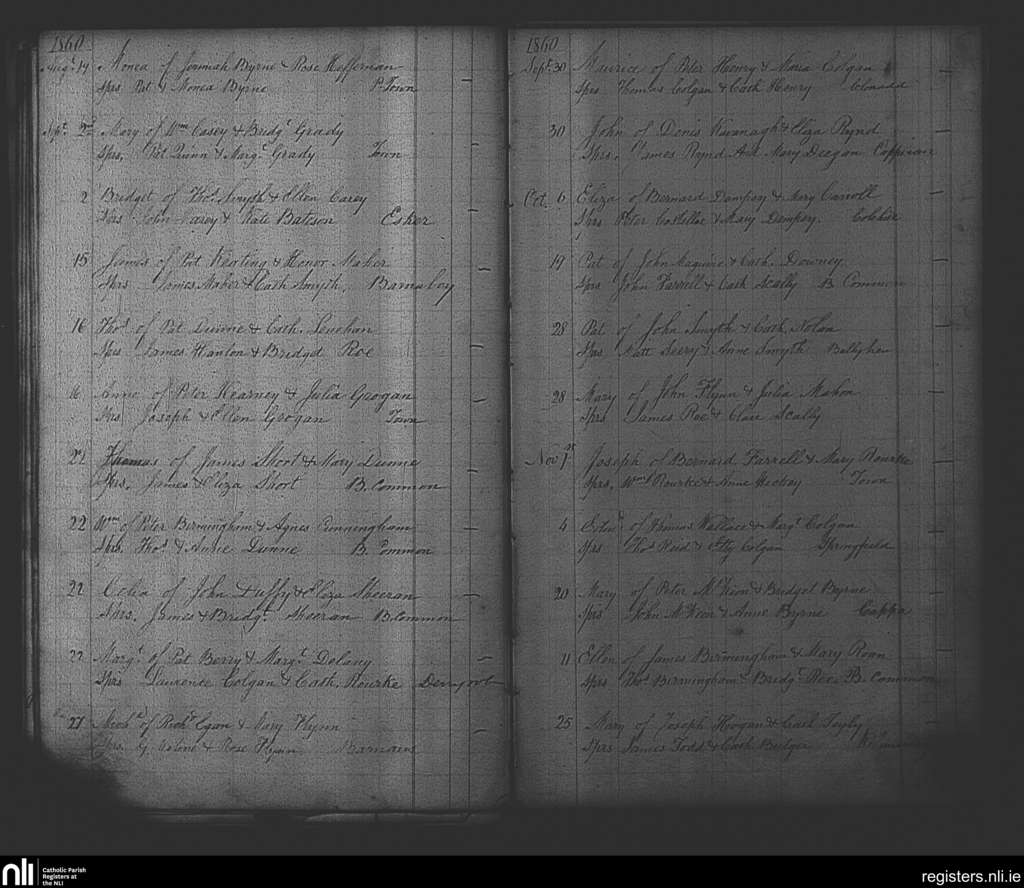 1860
Augt 19 Monea of Jeremiah Byrne & Rose Heffernan
Sprs Pat & Monea Byrne P. Town
Sept. 2nd Mary of Wm Casey & Bridgt Grady
Sprs, Pat Quinn & Margt Grady Town
2 Bridget of Thos Smyth & Ellen Carey
Sprs John Carey & Kate Bateson Esker
15 James of Pat Kerting & Honor Maher
Sprs James Maher & Cath Smyth, Barnaboy
16 Thos of Pat Dunne & Cath. Leuchan
Sprs James Hanlon & Bridget Roe
16 Anne of Peter Kearney & Julia Grogan
Sprs Joseph & Ellen Grogan Town
22 Thomas of James Short & Mary Dunne
Sprs, James & Eliza Short B. Common
22 Wm of Peter Birmingham & Agnes Cunningham
Sprs. Thos & Anne Dunne B. Common
22 Celia of John Duffy & Eliza Sheeran
Sprs, James & Bridgt Sheeran B. Common
22 Margt of Pat Berry & Margt Delany
Sprs Laurence Colgan & Cath. Rourke
27 Michl of Richd Egan & Mary Flynn
Sprs. & Rose Flynn
1860
Sept. 30 Maurice of Peter Henry & Maria Colgan
Sprs Thomas Colgan & Cath Henry Clonadd
30 John of Denis Kavanagh & Eliza Rynd
Sprs, James Rynd And Mary Deegan
Oct. 6 Eliza of Bernard Dempsy & Mary Carroll
Sprs Peter Costellar & Mary Dempsy.
19 Pat of John Maguire & Cath. Downey
Sprs John Farrell & Cath Scally B Common
28 Pat of John Smyth & Cath. Nolan
Sprs, Matt Seery & Anne Smyth
28 Mary of John Flynn & Julia Mahon
Sprs James Roe & Clare Scally
Nov 1st Joseph of Bernard Farrell & Mary Rourke
Sprs, Wm Rourke & Anne Town
4 of Thomas Wallace & Margt Colgan
Sprs Thos Reid & Etty Colgan Springfield
20 Mary of Peter McKeon & Bridget Byrne
Sprs John McKeon & Anne Byrne Cappa
11 Ellen of James Birmingham & Mary Roan
Sprs Thos Birmingham & Bridgt Roe B. Common
25 Mary of Joseph Hoogan & Cath
Sprs James Todd & Cath Bulger
nli
Catholic Parish
Registers at
the NLI
registers.nli.ie